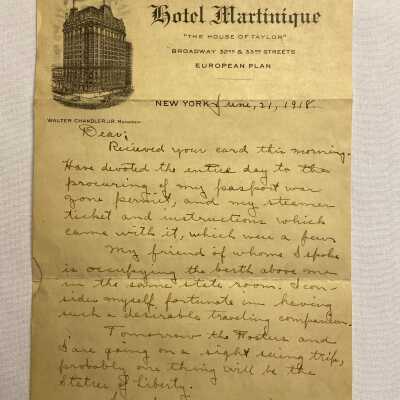 Hotel Martinique
"THE HOUSE OF TAYLOR"
BROADWAY 32ND & 33RD STREETS
EUROPEAN PLAN
NEW YORK June, 21, 1918.
WALTER CHANDLER, JR. MANAGER
Dear;
Recieved your card this morning.
Have devoted the entire day to the
procuring of my passport war
zone permit, and my steamer
ticket and instructions which
came with it, which were a few.
My friend of whom I spoke
is occupying the berth above me
in the same state room. I con-
sider myself fortunate in having
such a desirable traveling companion.
Tomorrow the and
I are going on a sight seeing trip,
probably one thing will be the
Statue of liberty.